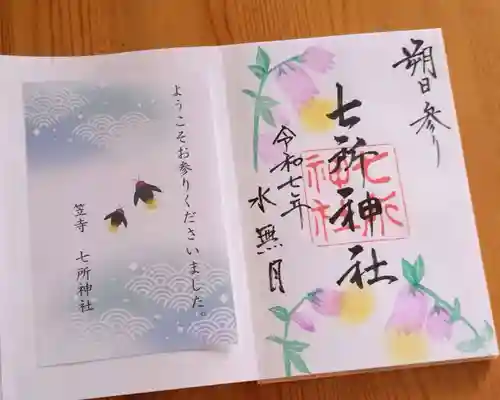 朔日参り
七所神社
令和七年
水無月
七所神社
ようこそお参りくださいました。
笠寺 七所神社